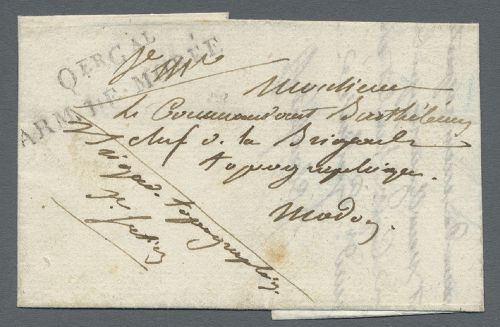 QER GAL
ARMÉE MORÉE
Monsieur
Le Commandant Barthélemy
chef de la Brigade
topographique.
Modon.
Brigade topographique